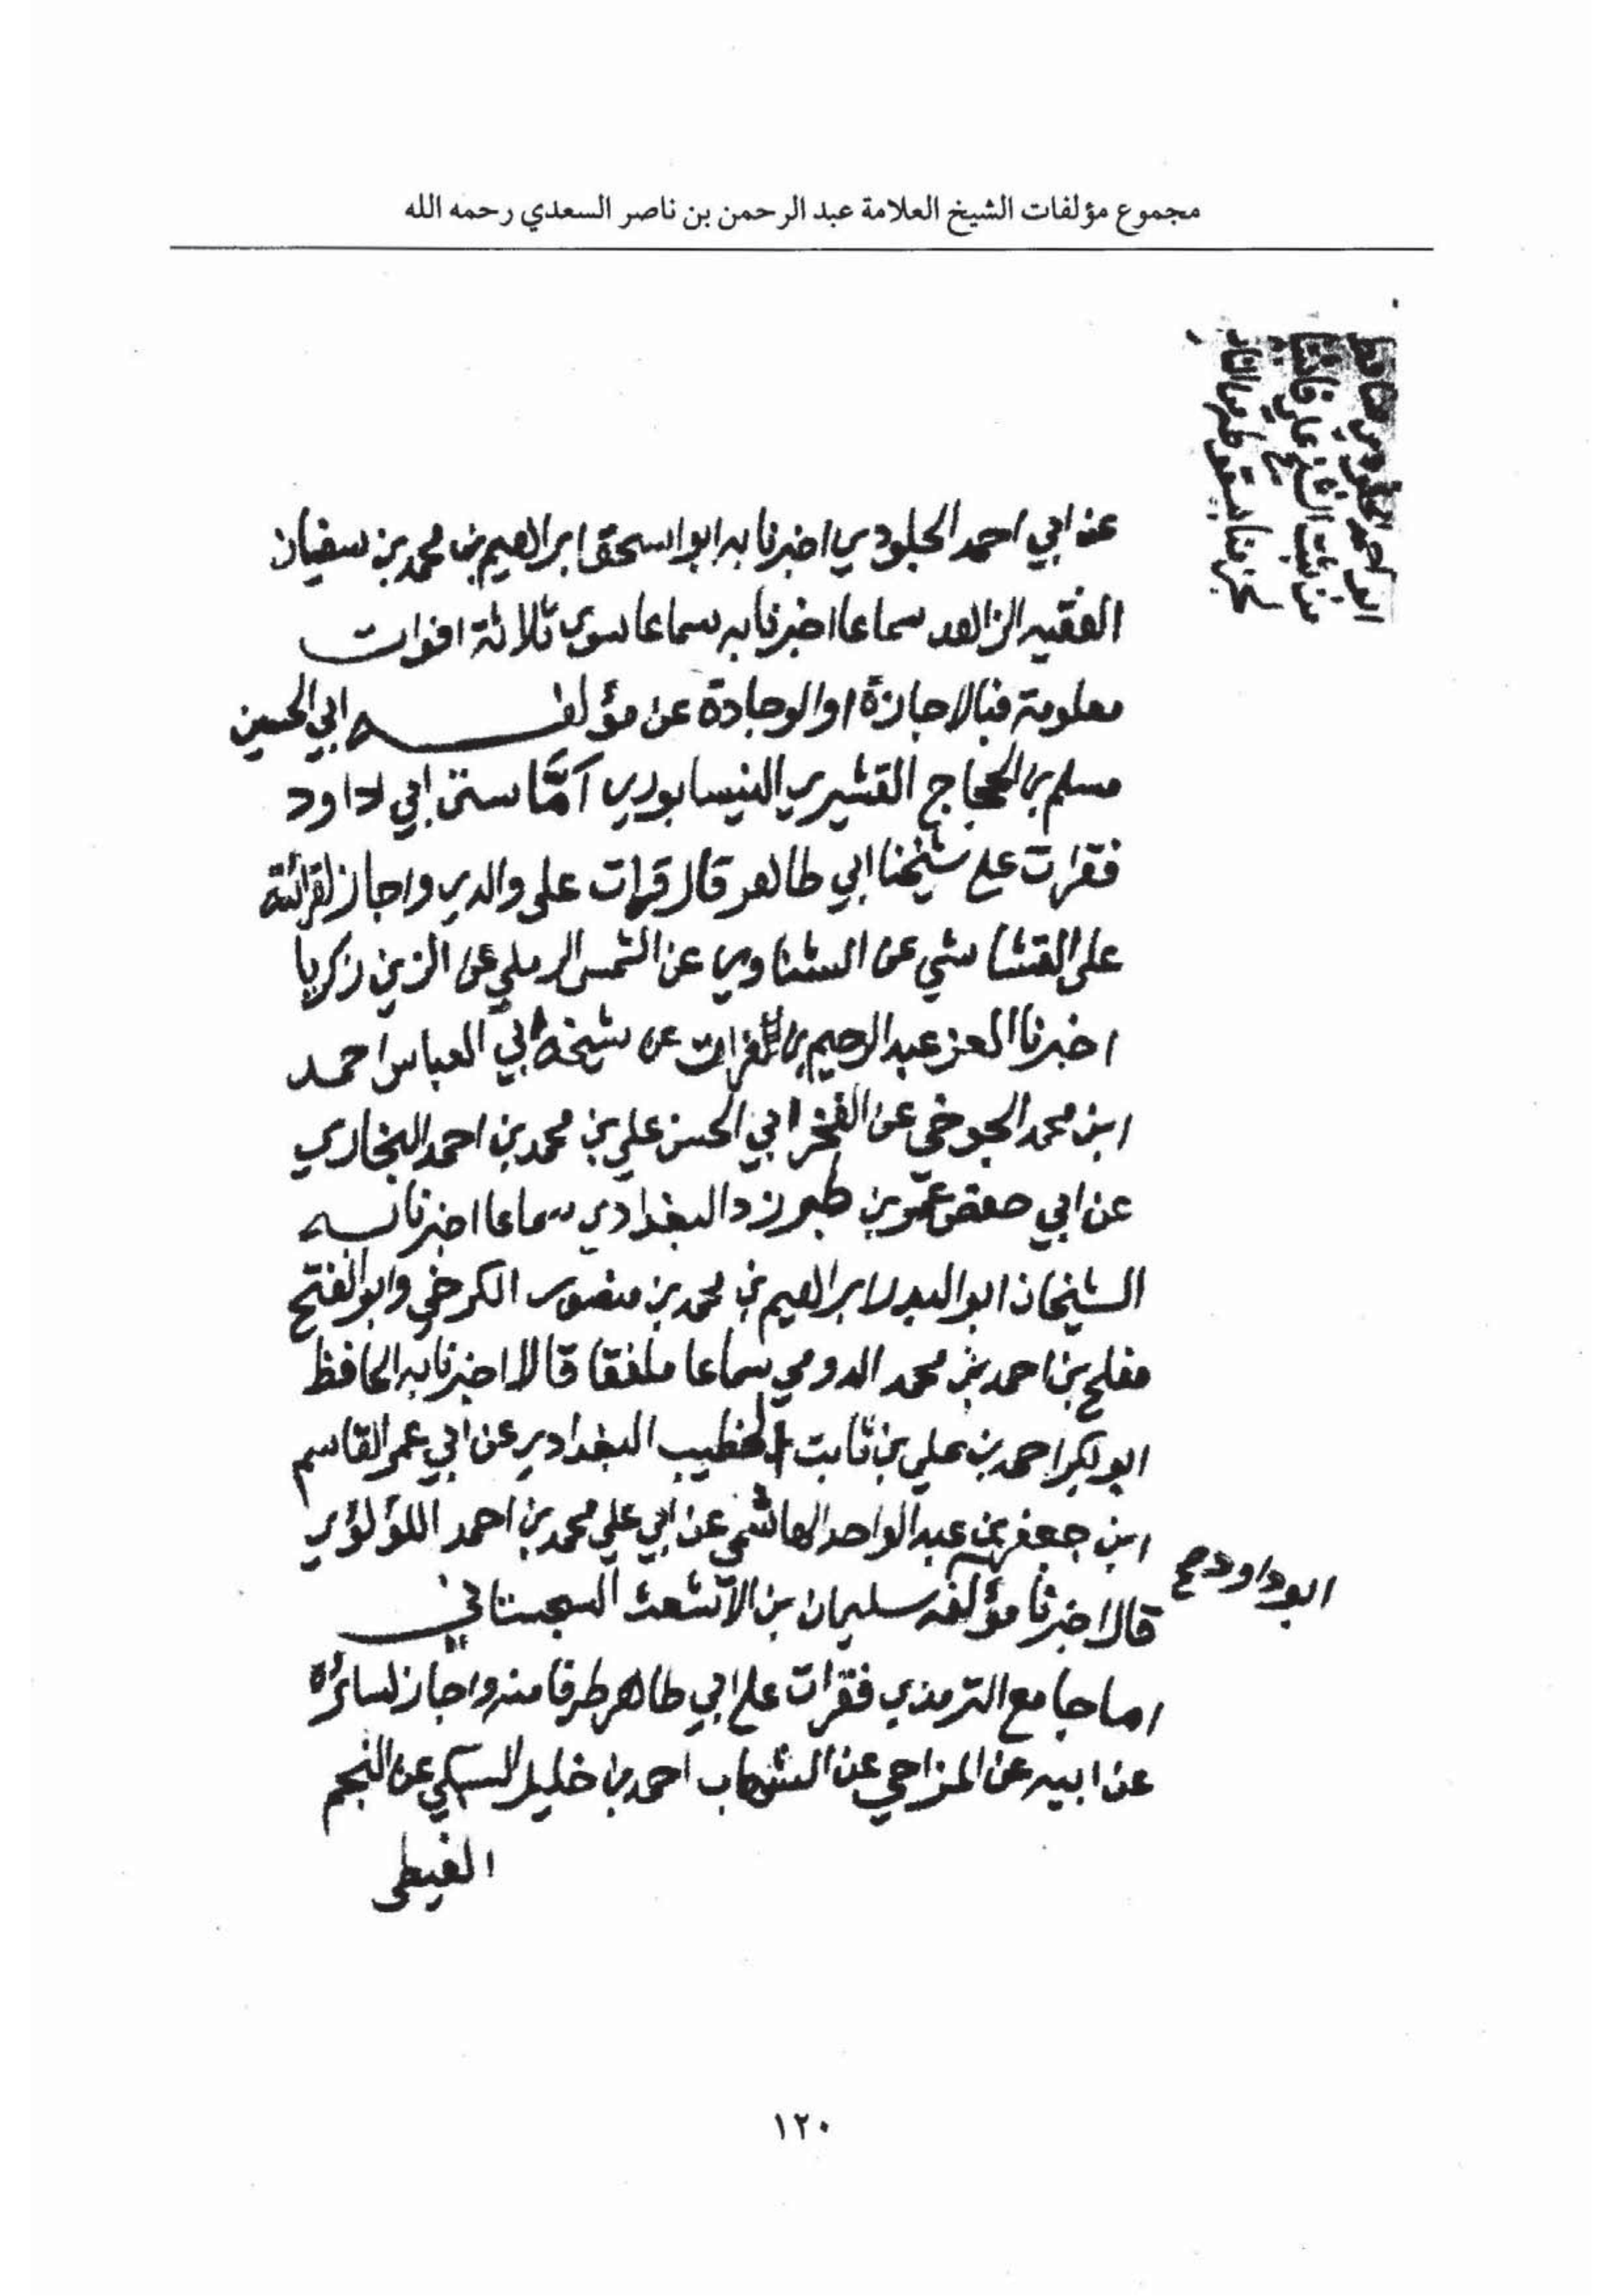 مجموع مؤلفات الشيخ العلامة عبد الرحمن بن ناصر السعدي رحمه الله
عن ابي احمد الجلودي اخبرنا به ابو اسحق ابراهيم بن محمد بن سفيان
الفقيه الزاهد سماعا اخبرنا به سماعا سوى ثلاثة افوات
معلومة فبالاجازة او الوجادة عن مؤلفه ابي الحسين
مسلم بن الحجاج القشيري النيسابوري أمّا سنن ابي داود
فقرات على شيخنا ابي طاهر قال قرات على والدي واجاز لقرائته
على القشاشي عن الشناوي عن الشمس الرملي عن الزين زكريا
اخبرنا العز عبد الرحيم بن الفرات عن شيخه ابي العباس احمد
ابن محمد الجوخي عن الفخر ابي الحسن علي بن محمد بن احمد البخاري
عن ابي حفص عمر بن طبرزد البغدادي سماعا اخبرنا به
الشيخان ابو البدر ابراهيم بن محمد بن منصور الكرخي وابو الفتح
مفلح بن احمد بن محمد الدومي سماعا ملفقا قالا اخبرنا به الحافظ
ابو بكر احمد بن علي بن ثابت الخطيب البغدادي عن ابي عمر القاسم
ابن جعفر بن عبد الواحد الهاشمي عن ابي علي محمد بن احمد اللؤلؤي
ابو داود صح
قال اخبرنا مؤلفه سليمان بن الأشعث السجستاني
اما جامع الترمذي فقرات على ابي طاهر طرفا منه واجاز لسائره
عن ابيه عن المزاحي عن الشهاب احمد بن خليل السبكي عن النجم
الغيطي
١٢٠